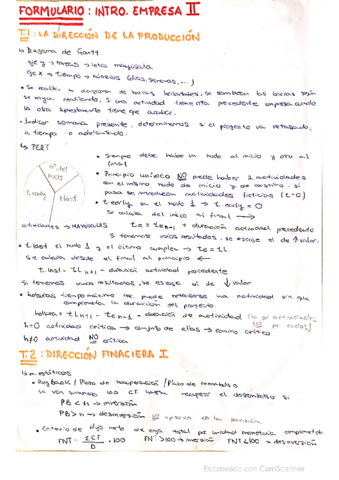 FORMULARIO: INTRO. EMPRESA II
T.1: LA DIRECCIÓN DE LA PRODUCCIÓN
↳ Diagrama de Gantt
eje y → tareas → letra mayúscula
eje x → tiempo → números (días, semanas, ...)
• Se realiza un diagrama de barras horizontales, se sombrean las barras según
se vayan realizando, si una actividad tiene otra precedente empieza cuando
la otra
• Indicar semana presente, determinamos si el proyecto va retrasado,
a tiempo o adelantado.
↳ PERT
nº del nodo
t early
t last
• Siempre debe haber un nodo al inicio y otro al
final
• Principio unívoco NO puede haber 2 actividades
con el mismo nodo de inicio y de destino. Si
pasa se introducen actividades ficticias (t=0)
• t early en el nodo 1 → t early = 0
Se calcula del inicio al final →
actividades → MAYÚSCULAS
tE = tE n-1 + duración actividad precedente
si tenemos varios resultados, se escoge el de ↑ valor.
• t last el nodo 1 y el último cumplen → tE = tL
se calcula desde el final al principio ←
t last = tL n+1 − duración actividad precedente
si tenemos varios resultados, se escoge el de ↓ valor
• holgura: tiempo máximo que puede retrasarse una actividad sin que
comprometa la duración del proyecto.
holgura = tL n+1 − tE n-1 − duración de actividad
NO
h=0 actividad crítica → conjunto de ellas → camino crítico
h≠0 actividad NO crítica
T.2: DIRECCIÓN FINACIERA I
↳ m. estáticos
• Payback / Plazo de recuperación / Plazo de reembolso
se van sumando los CF hasta recuperar el desembolso si
PB < n → inversión
PB > n → desinversión
• Criterio de flujo neto de caja total por unidad monetaria comprometida
FNT = ΣCF / D · 100 FNT > 100 → inversión FNT < 100 → desinversión
Escaneado con CamScanner